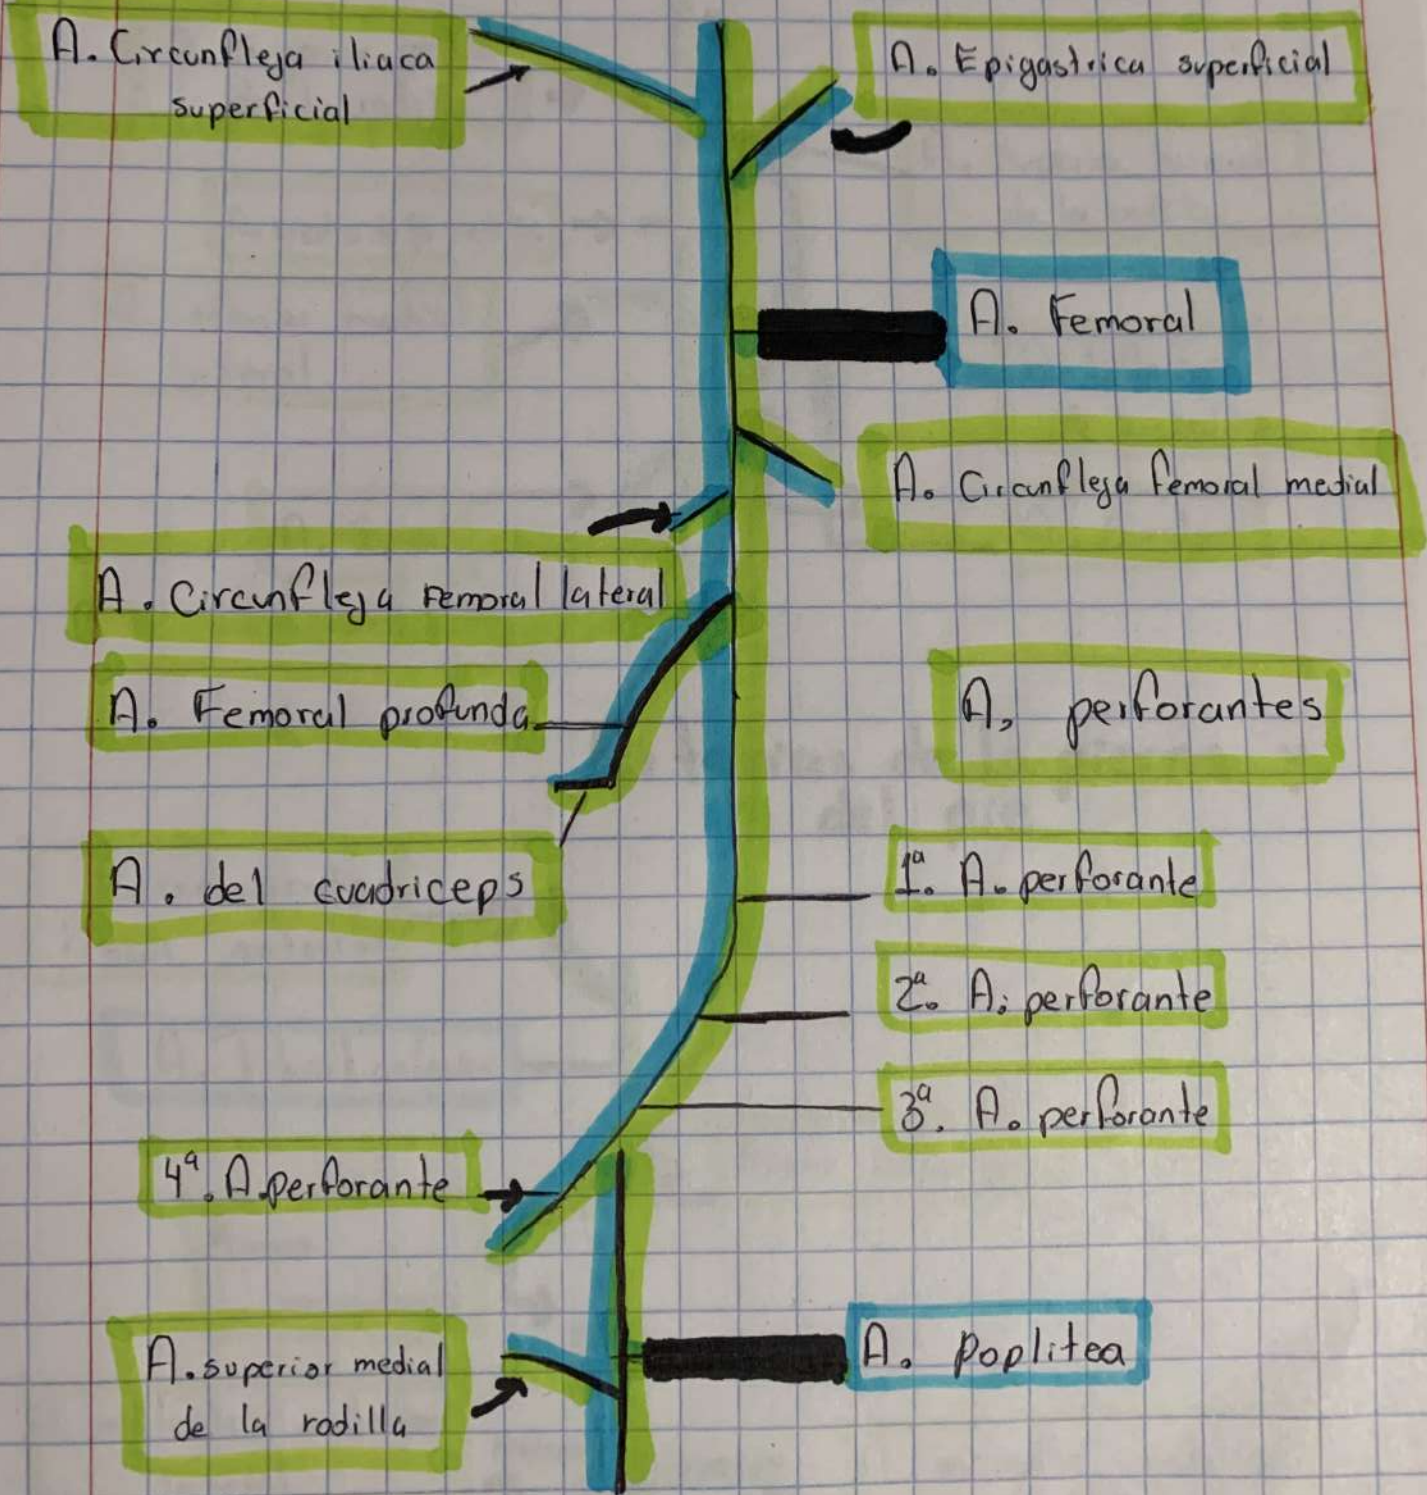 A. Circunfleja iliaca
superficial
A. Epigastrica superficial
A. Femoral
A. Circunfleja femoral medial
A. Circunfleja Femoral lateral
A. Femoral profunda
A, perforantes
A. del cuadriceps
1ª. A. perforante
2ª. A. perforante
3ª. A. perforante
4ª. A. perforante
A. superior medial
de la rodilla
A. poplitea